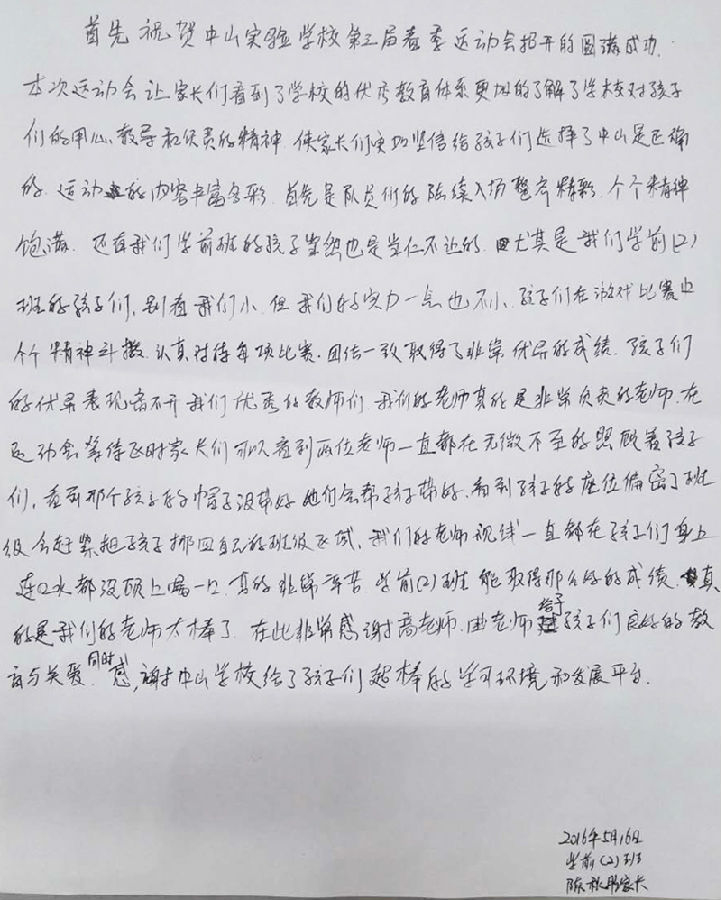 首先祝贺中山实验学校第三届春季运动会招开的圆满成功.
本次运动会让家长们看到了学校的优秀教育体系更加的了解了学校对孩子
们的用心、教导和负责的精神. 使家长们更加坚信给孩子们选择了中山是正确
的. 运动的内容丰富多彩. 首先是队员们的陆续入场整齐精彩. 个个精神
饱满. 还有我们学前班的孩子当然也是当仁不让的. 尤其是我们学前(2)
班的孩子们, 别看我们小. 但我们的实力一点也不小. 孩子们在游戏比赛中
个个精神斗擞. 认真对待每项比赛. 团结一致取得了非常优异的成绩. 孩子们
的优异表现离不开我们优秀的教师们. 我们的老师真的是非常负责的老师. 在
运动会等待区时家长们可以看到两位老师一直都在无微不至的照顾着孩子
们, 看到那个孩子的帽子没带好她们会帮孩子带好. 看到孩子的座位偏离了班
级会赶紧把孩子挪回自己的班级区域. 我们的老师视线一直都在孩子们身上
连口水都没顾上喝一口. 真的非常辛苦. 学前(2)班能取得那么好的成绩. 真
的是我们的老师太棒了. 在此非常感谢高老师. 曲老师给予孩子们良好的教
育与关爱. 同时感谢中山学校给了孩子们超棒的学习环境和发展平台.
2016年5月16日
学前(2)班
陈 家长